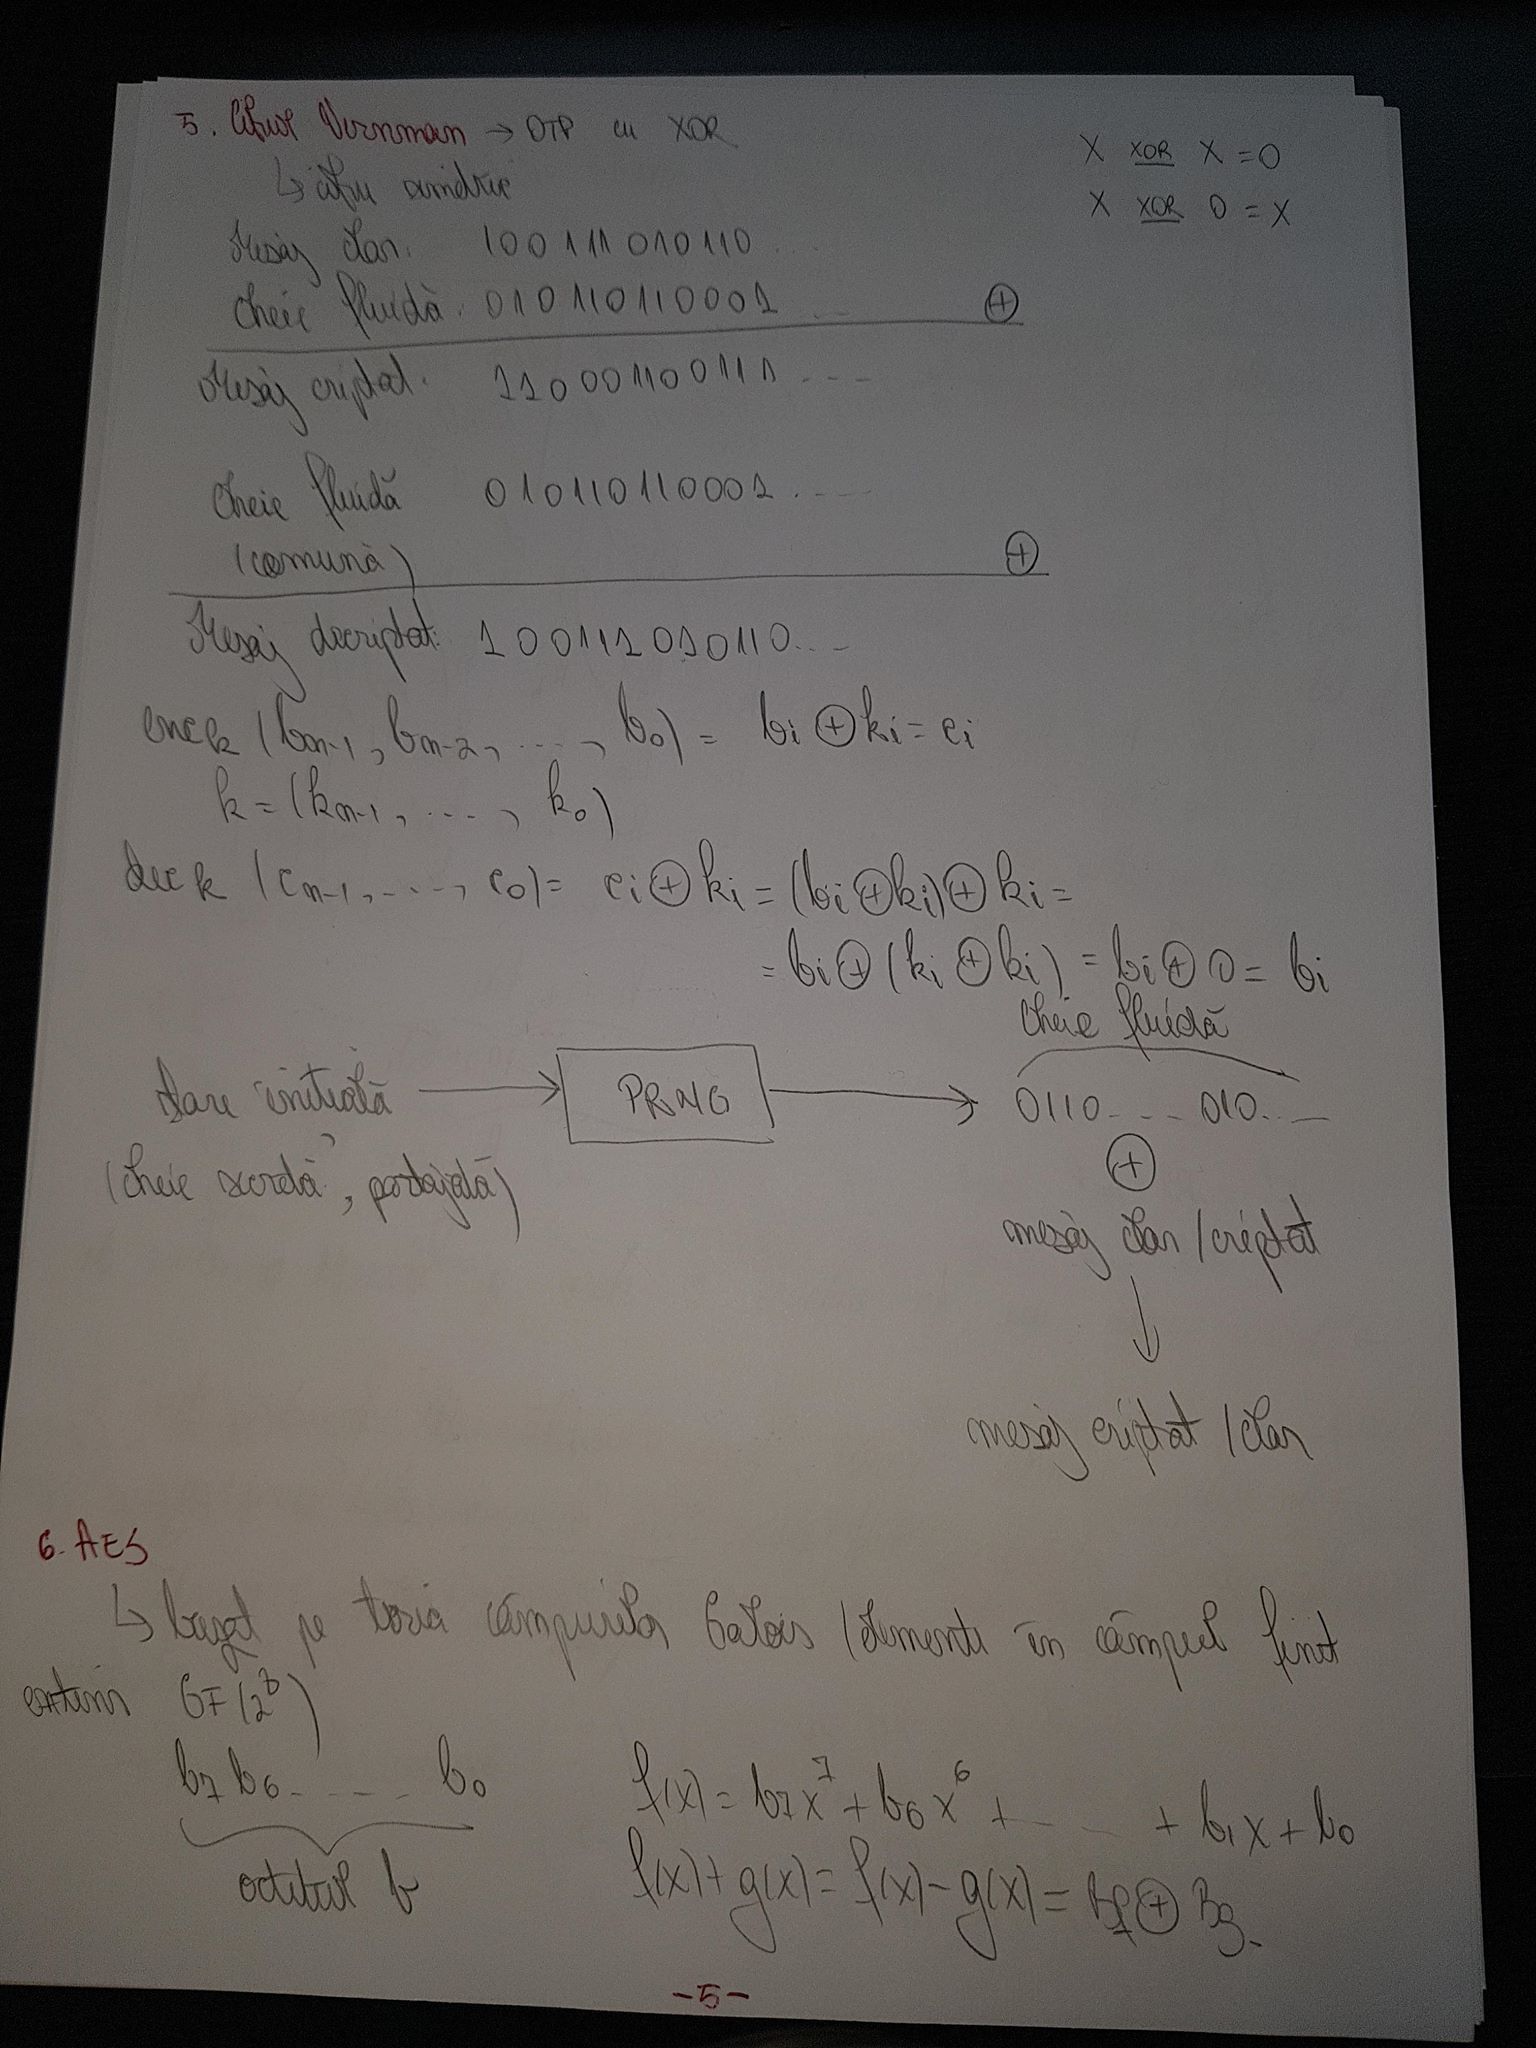 5. Cifrul Vernman → OTP cu XOR
X XOR X = 0
↳ cifru simetric
X XOR 0 = X
Mesaj clar: 100111010110 ...
Cheie fluidă: 010110110001 ... ⊕
Mesaj criptat: 110001100111 ...
Cheie fluidă 010110110001 ....
(comună) ⊕
Mesaj decriptat: 100111010110...
enc k (bn-1, bn-2, ..., b0) = bi ⊕ ki = ci
k = (kn-1, ..., k0)
dec k (cn-1, ..., c0) = ci ⊕ ki = (bi ⊕ ki) ⊕ ki =
= bi ⊕ (ki ⊕ ki) = bi ⊕ 0 = bi
cheie fluidă
stare inițială → PRNG → 0110... 010...
(cheie secretă, partajată) ⊕
mesaj clar / criptat
↓
mesaj criptat / clar
6. AES
↳ bazat pe teoria câmpurilor Galois (elemente în câmpul finit
extins GF(2⁸)
b7 b6 .... b0 f(x) = b7x⁷ + b6x⁶ + ... + b1x + b0
octetul b f(x) + g(x) = f(x) - g(x) = Bf ⊕ Bg.
-5-